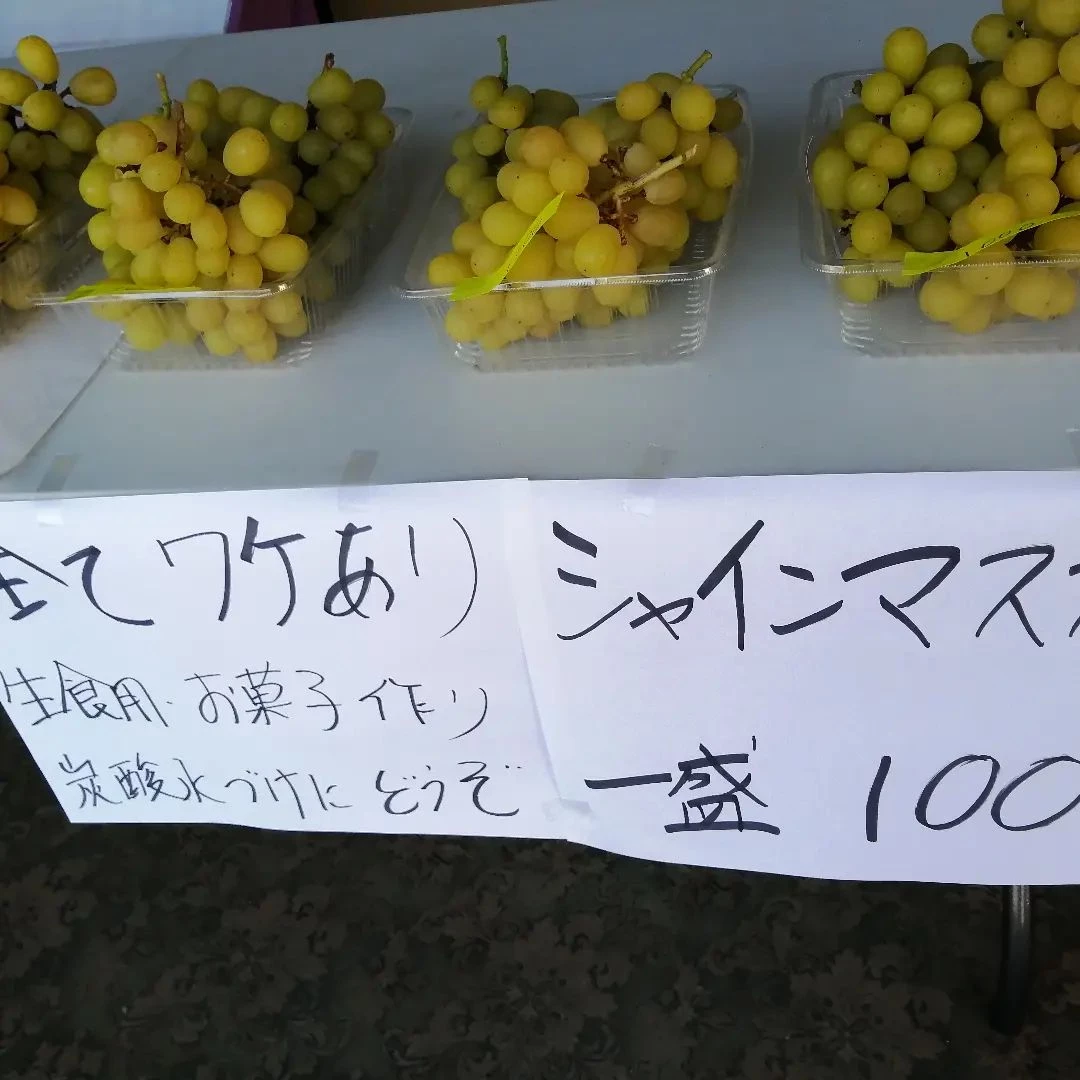 全てワケあり
生食用・お菓子作り
炭酸水づけにどうぞ
シャインマス
一盛 100